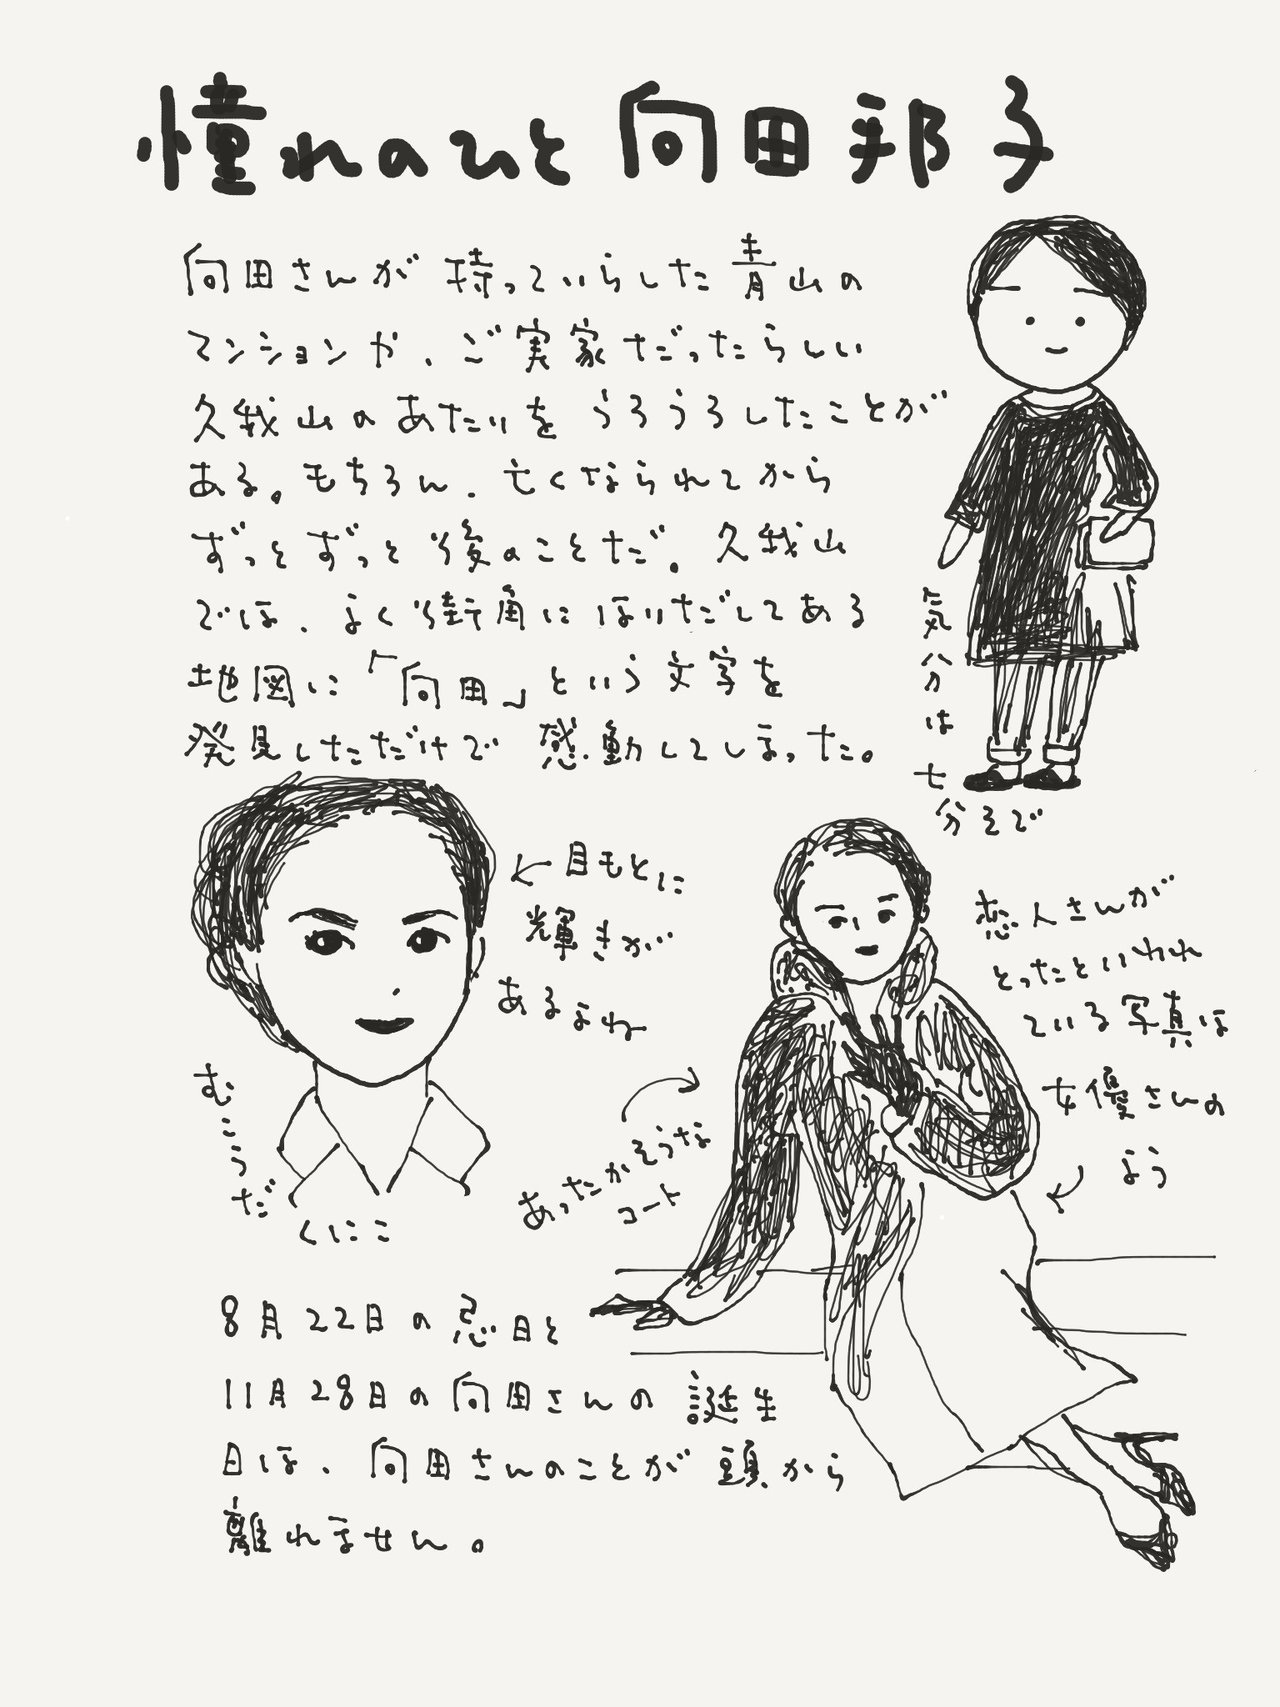 憧れのひと 向田邦子
向田さんが 持っていらした 青山の
マンションや、ご実家だったらしい
久我山のあたりを うろうろしたことが
ある。もちろん、亡くなられてから
ずっとずっと後のことだ。久我山
では、よく街角にはりだしてある
地図に「向田」という文字を
発見しただけで 感動してしまった。
気分は七
分そで
←目もとに
輝きが
あるよね
むこうだ
くにこ
恋人さんが
とったといわれ
ている写真は
女優さんの
よう
あったかそうな
コート
8月22日の忌日と
11月28日の向田さんの 誕生
日は、向田さんのことが 頭から
離れません。